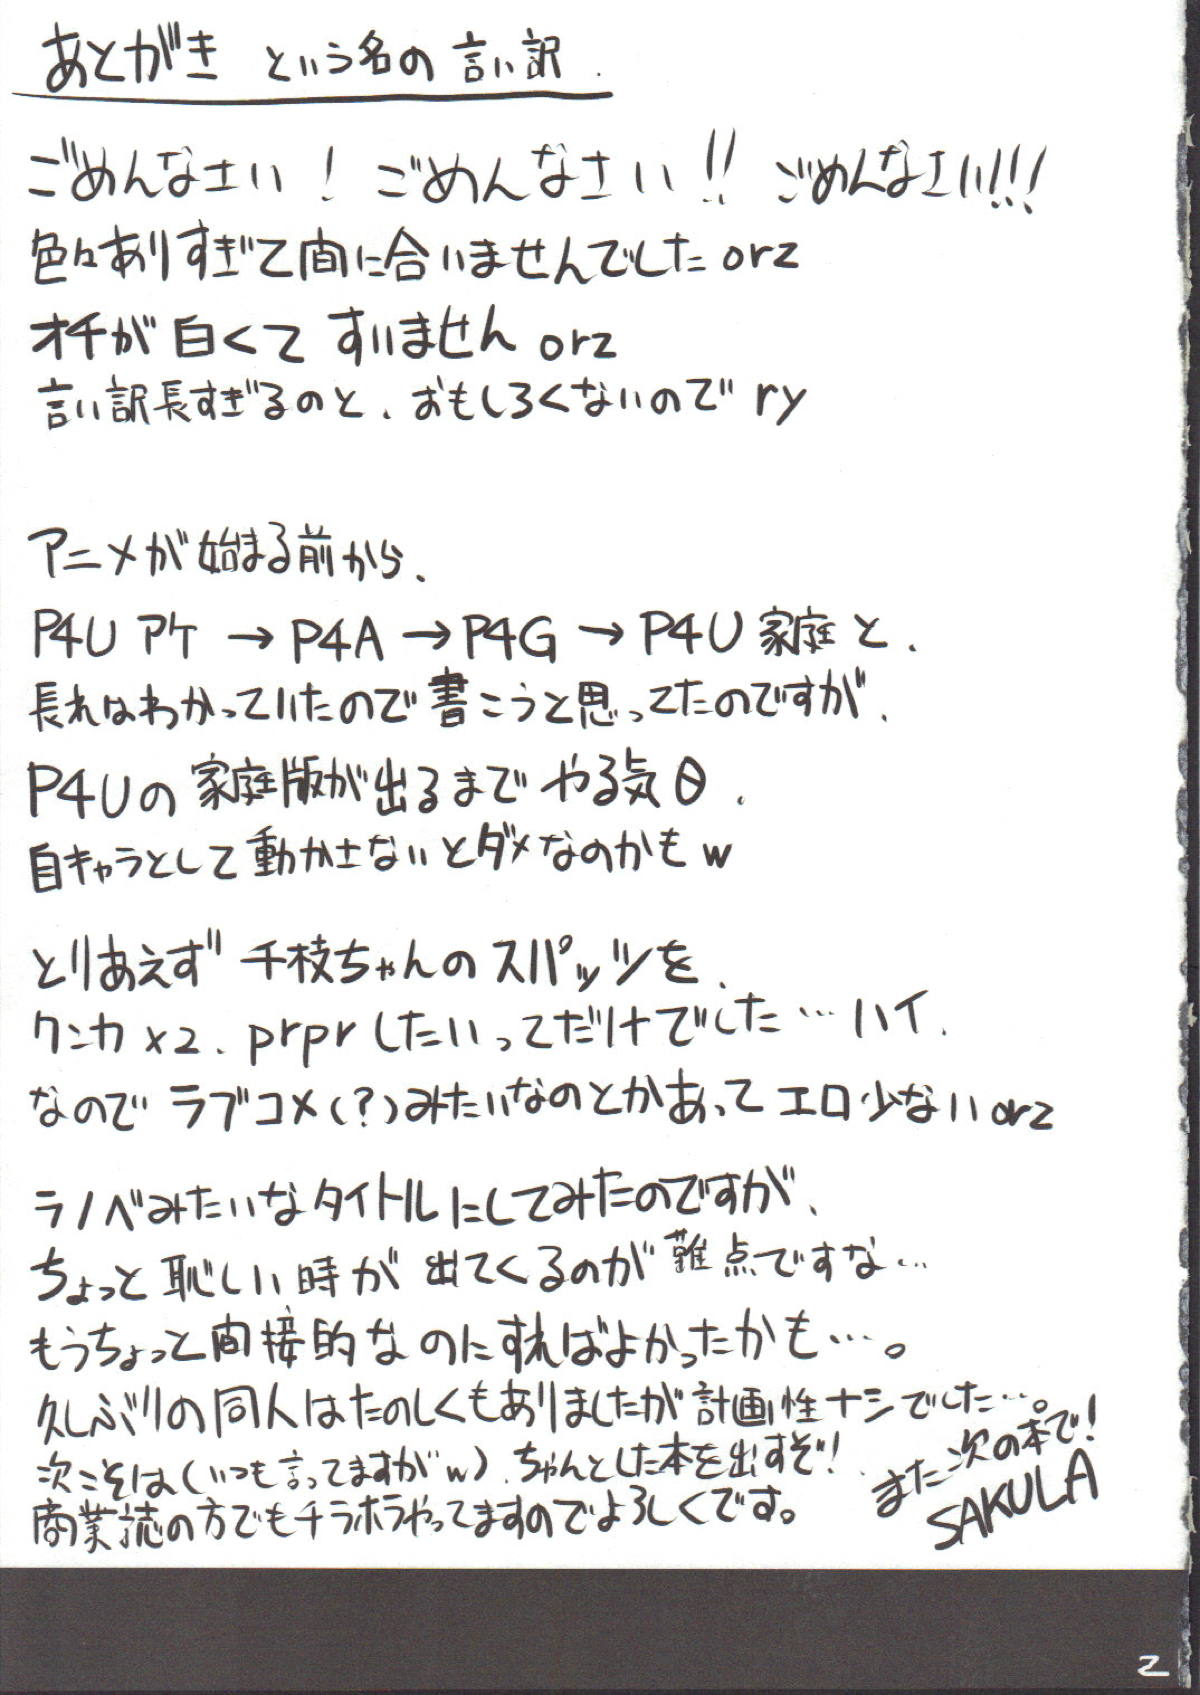 あとがき という名の言い訳.
ごめんなさい! ごめんなさい!! ごめんなさい!!!
色々ありすぎて間に合いませんでした orz
オチが白くて すいません orz
言い訳長すぎるのと、おもしろくないので ry
アニメが始まる前から、
P4U アケ → P4A → P4G → P4U 家庭と、
長れはわかっていたので書こうと思ってたのですが、
P4Uの家庭版が出るまで やる気θ、
自キャラとして動かさないとダメなのかもw
とりあえず 千枝ちゃんのスパッツを、
クンカ×2、prprしたいってだけでした…ハイ、
なので ラブコメ(?)みたいなのとかあって エロ少ない orz
ラノベみたいなタイトルにしてみたのですが、
ちょっと恥しい時が出てくるのが難点ですな…
もうちょっと間接的なのにすればよかったかも…。
久しぶりの同人はたのしくもありましたが計画性ナシでした…。
次こそは(いつも言ってますがw)、ちゃんとした本を出すぞ!
商業誌の方でもチラホラやってますのでよろしくです。
また次の本で!
SAKULA
2